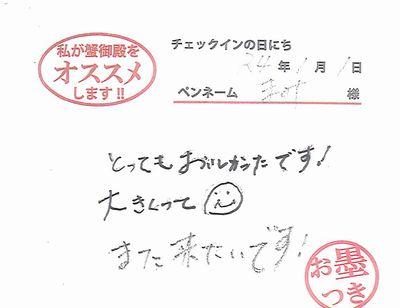 私が蟹御殿を
オススメ
します!!
チェックインの日にち
24年1月1日
ペンネーム 様
とってもおいしかったです!
大きくって
また来たいです!
お墨
つき